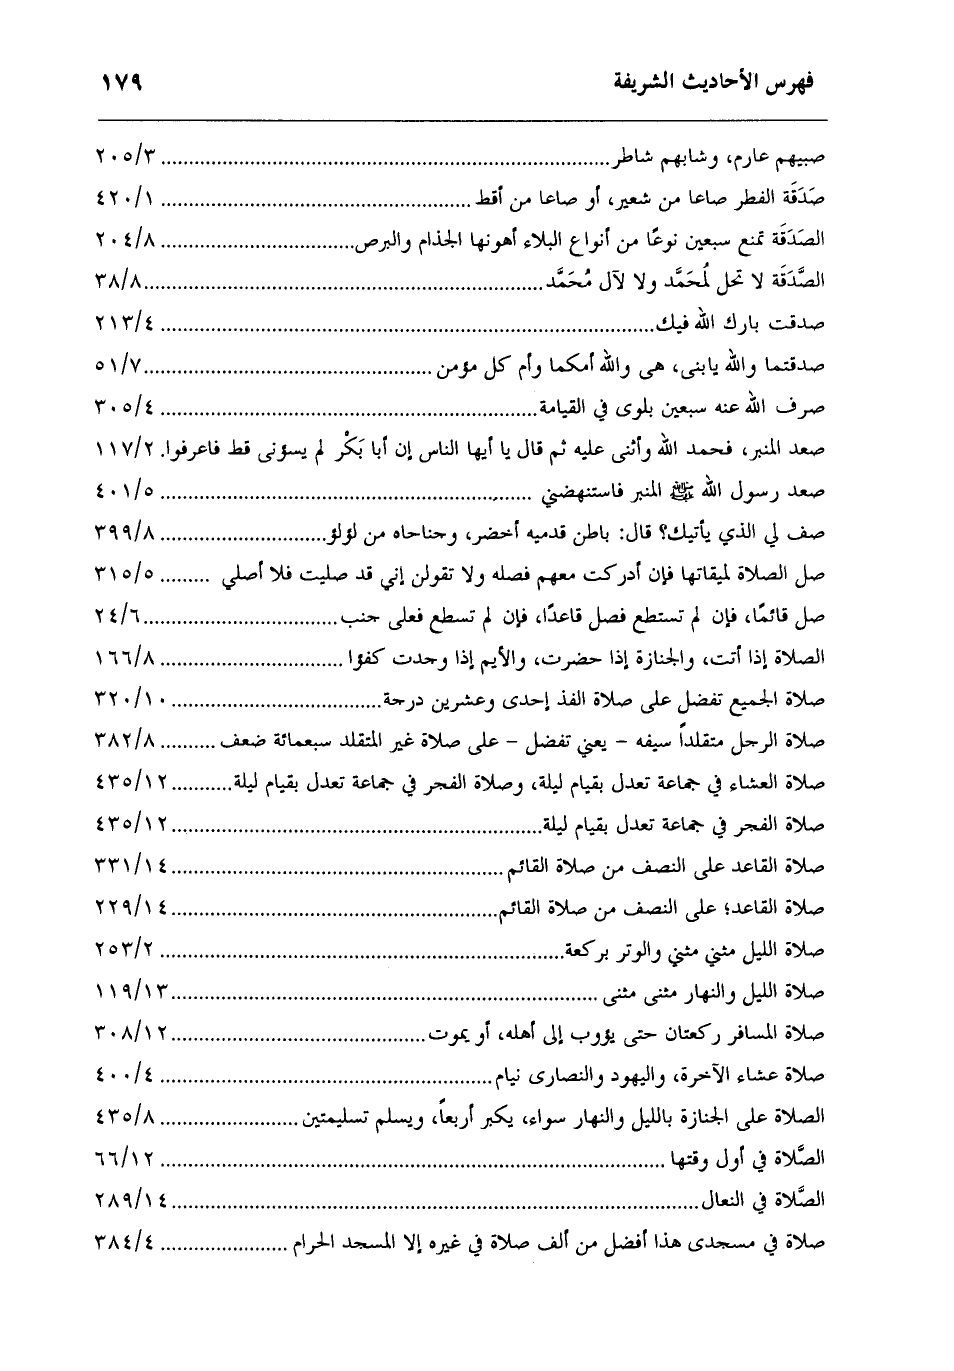 فهرس الأحاديث الشريفة ١٧٩
صبيهم عارم، وشابهم شاطر ........ ٢٠٥/٣
صَدَقَة الفطر صاعا من شعير، أو صاعا من أقط ........ ٤٢٠/١
الصَدَقَة تمنع سبعين نوعًا من أنواع البلاء أهونها الجذام والبرص ........ ٢٠٤/٨
الصَّدَقَة لا تحل لُمحَمَّد ولا لآل مُحَمَّد ........ ٣٨/٨
صدقت بارك الله فيك ........ ٢١٣/٤
صدقتما والله يابنى، هى والله أمكما وأم كل مؤمن ........ ٥١/٧
صرف الله عنه سبعين بلوى في القيامة ........ ٣٠٥/٤
صعد المنبر، فحمد الله وأثنى عليه ثم قال يا أيها الناس إن أبا بَكْر لم يسؤنى قط فاعرفوا. ١١٧/٢
صعد رسول الله ﷺ المنبر فاستنهضني ........ ٤٠١/٥
صف لي الذي يأتيك؟ قال: باطن قدميه أخضر، وجناحاه من لؤلؤ ........ ٣٩٩/٨
صل الصلاة لميقاتها فإن أدركت معهم فصله ولا تقولن إني قد صليت فلا أصلي ......... ٣١٥/٥
صل قائمًا، فإن لم تستطع فصل قاعدًا، فإن لم تسطع فعلى جنب ........ ٢٤/٦
الصلاة إذا أتت، والجنازة إذا حضرت، والأيم إذا وجدت كفؤا ........ ١٦٦/٨
صلاة الجميع تفضل على صلاة الفذ إحدى وعشرين درجة ........ ٣٢٠/١٠
صلاة الرجل متقلداً سيفه - يعني تفضل - على صلاة غير المتقلد سبعمائة ضعف .......... ٣٨٢/٨
صلاة العشاء في جماعة تعدل بقيام ليلة، وصلاة الفجر في جماعة تعدل بقيام ليلة ........... ٤٣٥/١٢
صلاة الفجر في جماعة تعدل بقيام ليلة ........ ٤٣٥/١٢
صلاة القاعد على النصف من صلاة القائم ........ ٣٣١/١٤
صلاة القاعد؛ على النصف من صلاة القائم ........ ٢٢٩/١٤
صلاة الليل مثني مثني والوتر بركعة ........ ٢٥٣/٢
صلاة الليل والنهار مثنى مثنى ........ ١١٩/١٣
صلاة المسافر ركعتان حتى يؤوب إلى أهله، أو يموت ........ ٣٠٨/١٢
صلاة عشاء الآخرة، واليهود والنصارى نيام ........ ٤٠٠/٤
الصلاة على الجنازة بالليل والنهار سواء، يكبر أربعاً، ويسلم تسليمتين ........ ٤٣٥/٨
الصَّلاة في أول وقتها ........ ٦٦/١٢
الصَّلاة في النعال ........ ٢٨٩/١٤
صلاة في مسجدى هذا أفضل من ألف صلاة في غيره إلا المسجد الحرام ........ ٣٨٤/٤